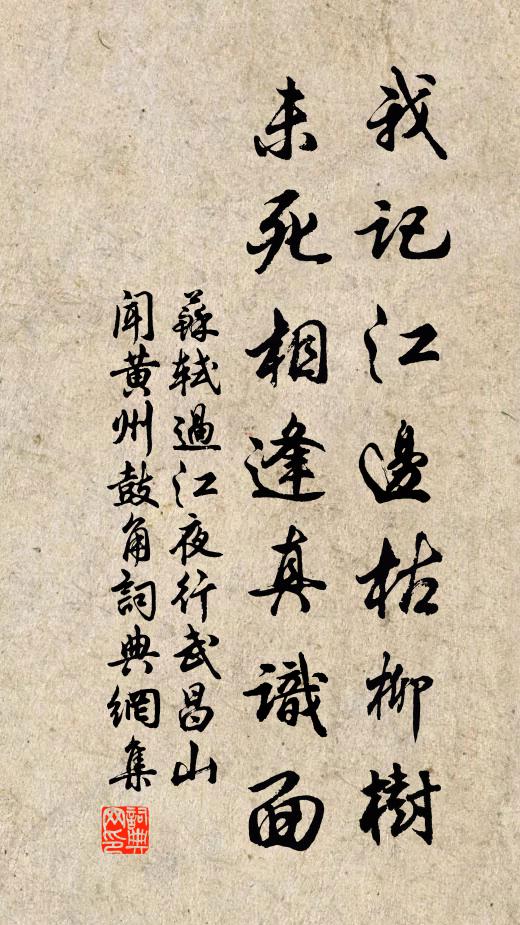 我記江邊枯柳樹
未死相逢真識面
蘇軾過江夜行武昌山
聞黃州鼓角詞典網集
詞典网印